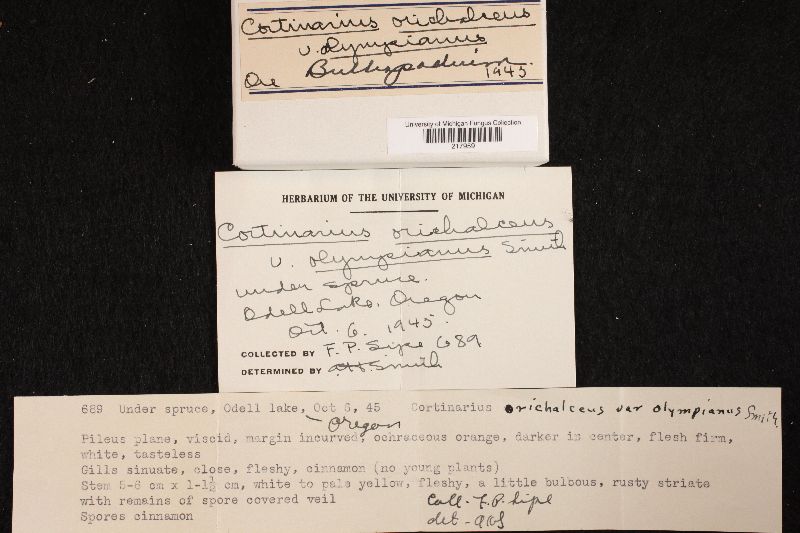 Cortinarius orichalceus
v. olympianus
Ore Bulbopodium. 1945
University of Michigan Fungus Collection
217959
HERBARIUM OF THE UNIVERSITY OF MICHIGAN
Cortinarius orichalceus
v. olympianus Smith
under spruce.
Odell Lake, Oregon
Oct. 6. 1945.
COLLECTED BY F. P. Sipe 689
DETERMINED BY AHSmith
689 Under spruce, Odell lake, Oct 6, 45 Cortinarius orichalceus var olympianus Smith.
Oregon
Pileus plane, viscid, margin incurved, ochraceous orange, darker in center, flesh firm,
white, tasteless
Gills sinuate, close, fleshy, cinnamon (no young plants)
Stem 5-6 cm x 1-1½ cm, white to pale yellow, fleshy, a little bulbous, rusty striate
with remains of spore covered veil Coll - F. P. Sipe
Spores cinnamon det - AHS